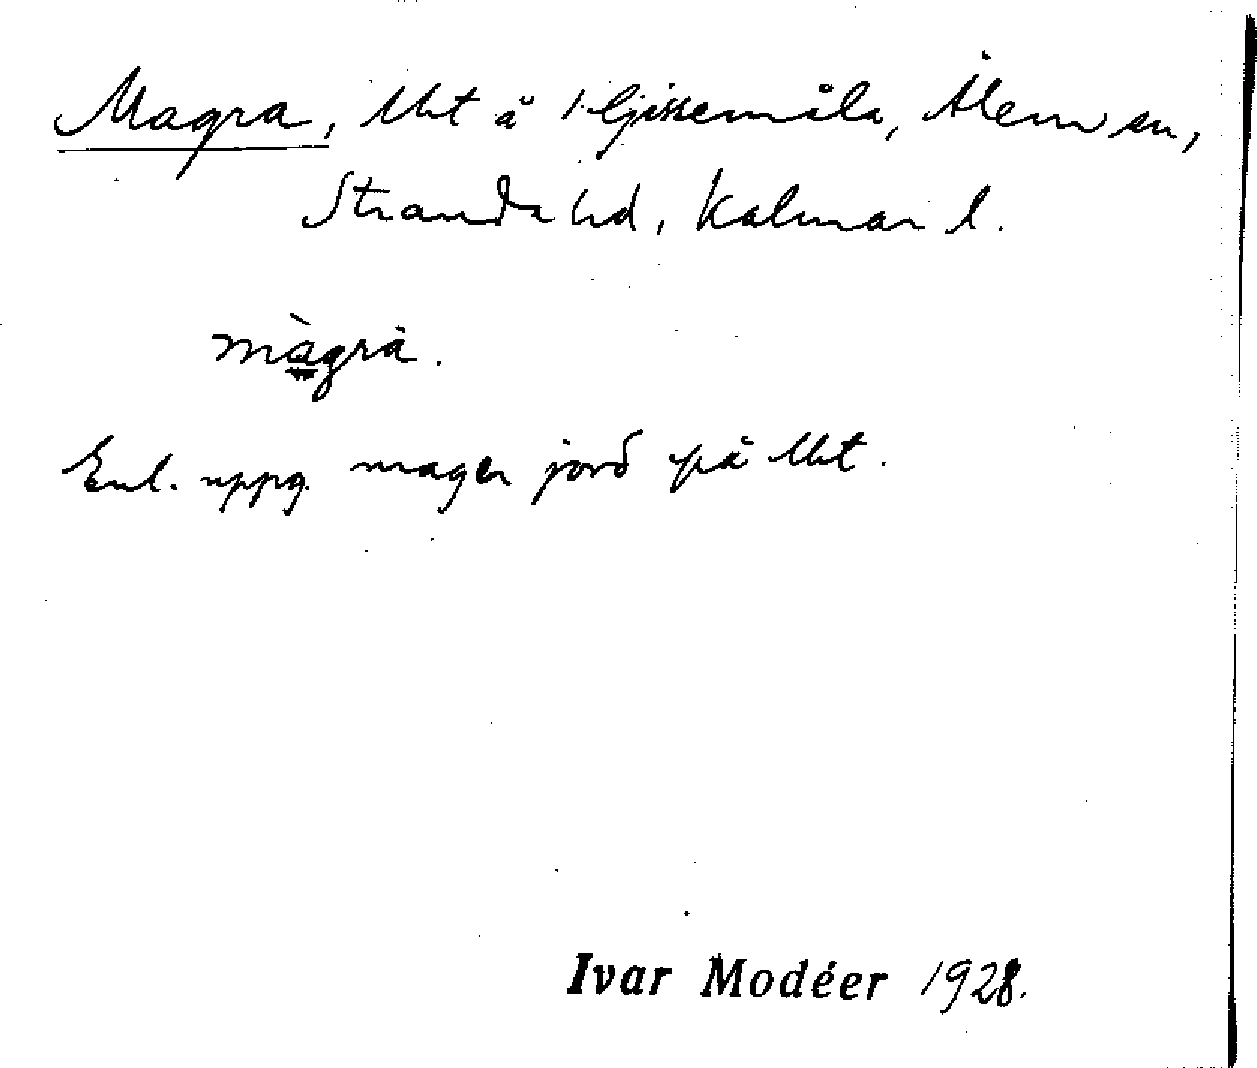 Magra, Utt å Hjissemåla, Ålem sn,
Stranda hd, Kalmar l.
màgrà.
Enl. uppg. mager jord på Utt.
Ivar Modéer 1928.